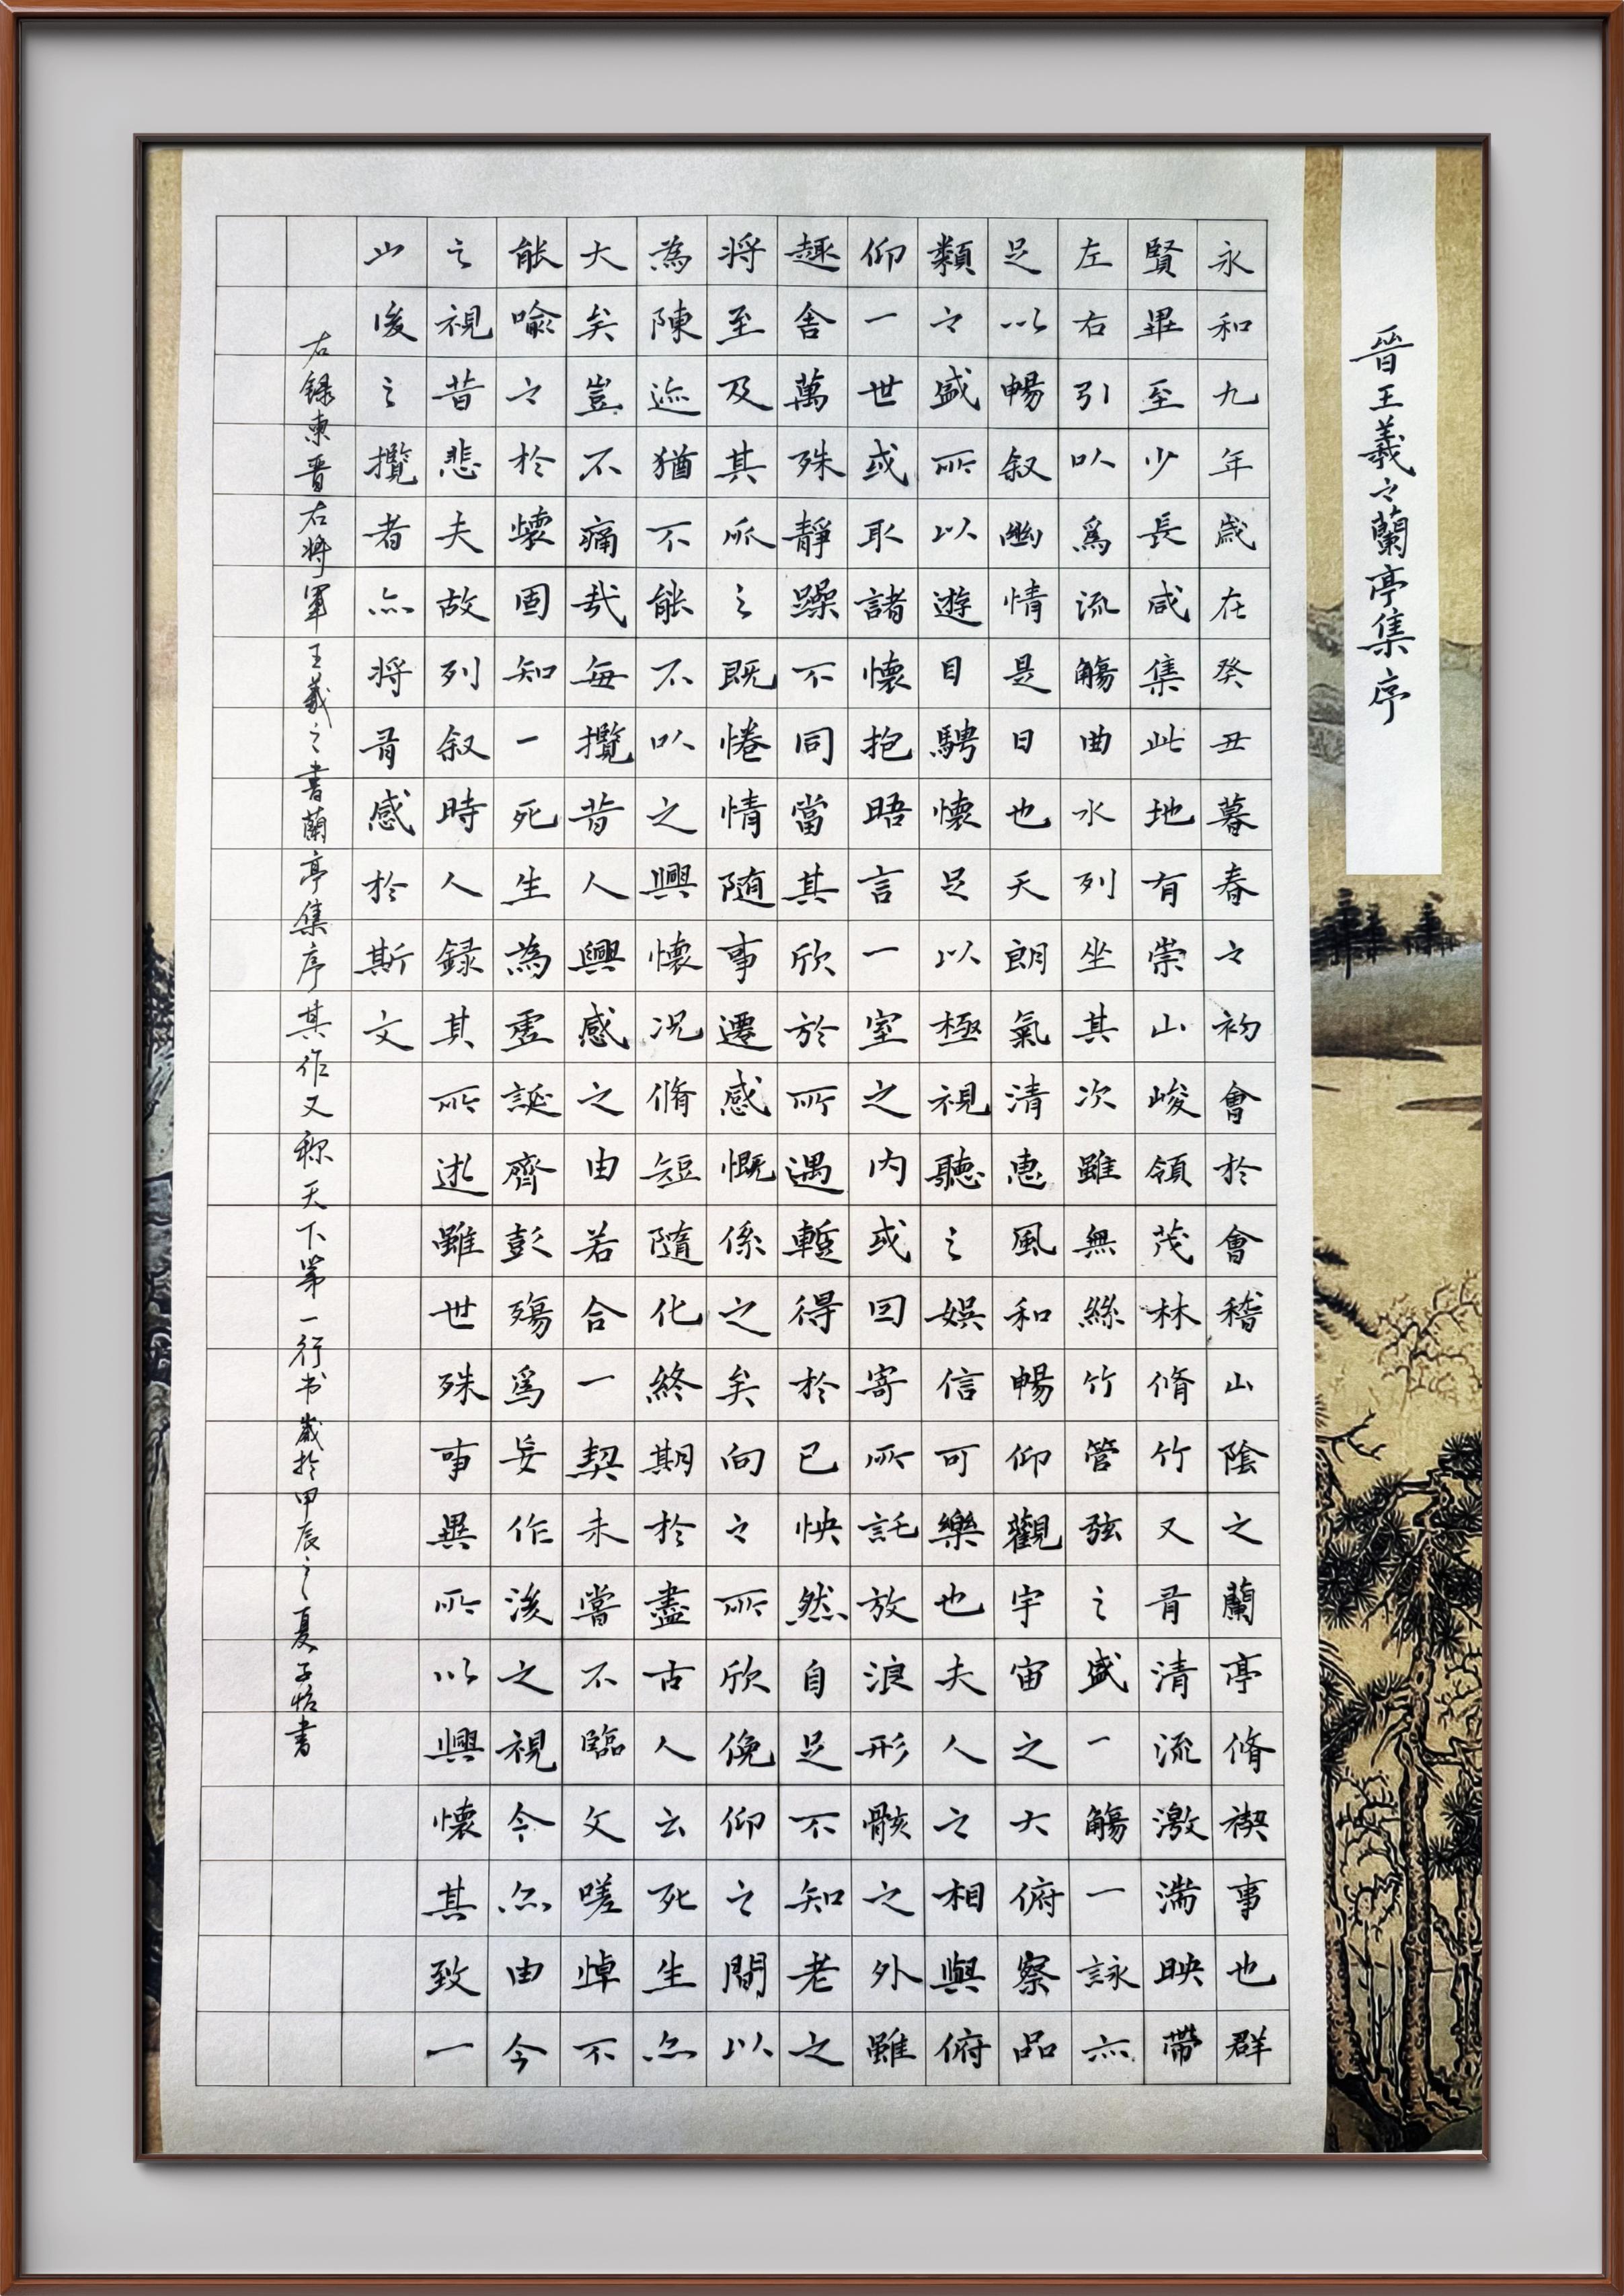 晉王羲之蘭亭集序
永和九年歲在癸丑暮春之初會於會稽山陰之蘭亭脩禊事也群
賢畢至少長咸集此地有崇山峻領茂林脩竹又有清流激湍映帶
左右引以爲流觴曲水列坐其次雖無絲竹管弦之盛一觴一詠亦
足以暢叙幽情是日也天朗氣清惠風和暢仰觀宇宙之大俯察品
類之盛所以遊目騁懷足以極視聽之娛信可樂也夫人之相與俯
仰一世或取諸懷抱晤言一室之内或因寄所託放浪形骸之外雖
趣舍萬殊靜躁不同當其欣於所遇暫得於己怏然自足不知老之
將至及其所之既惓情隨事遷感慨係之矣向之所欣俛仰之間以
為陳迹猶不能不以之興懷况脩短隨化終期於盡古人云死生亦
大矣豈不痛哉每攬昔人興感之由若合一契未嘗不臨文嗟悼不
能喻之於懷固知一死生為虛誕齊彭殤爲妄作後之視今亦由今
之視昔悲夫故列叙時人録其所述雖世殊事異所以興懷其致一
也後之攬者亦將有感於斯文
右録東晋右将軍王羲之書蘭亭集序其作又称天下第一行书歲於甲辰之夏子恪書